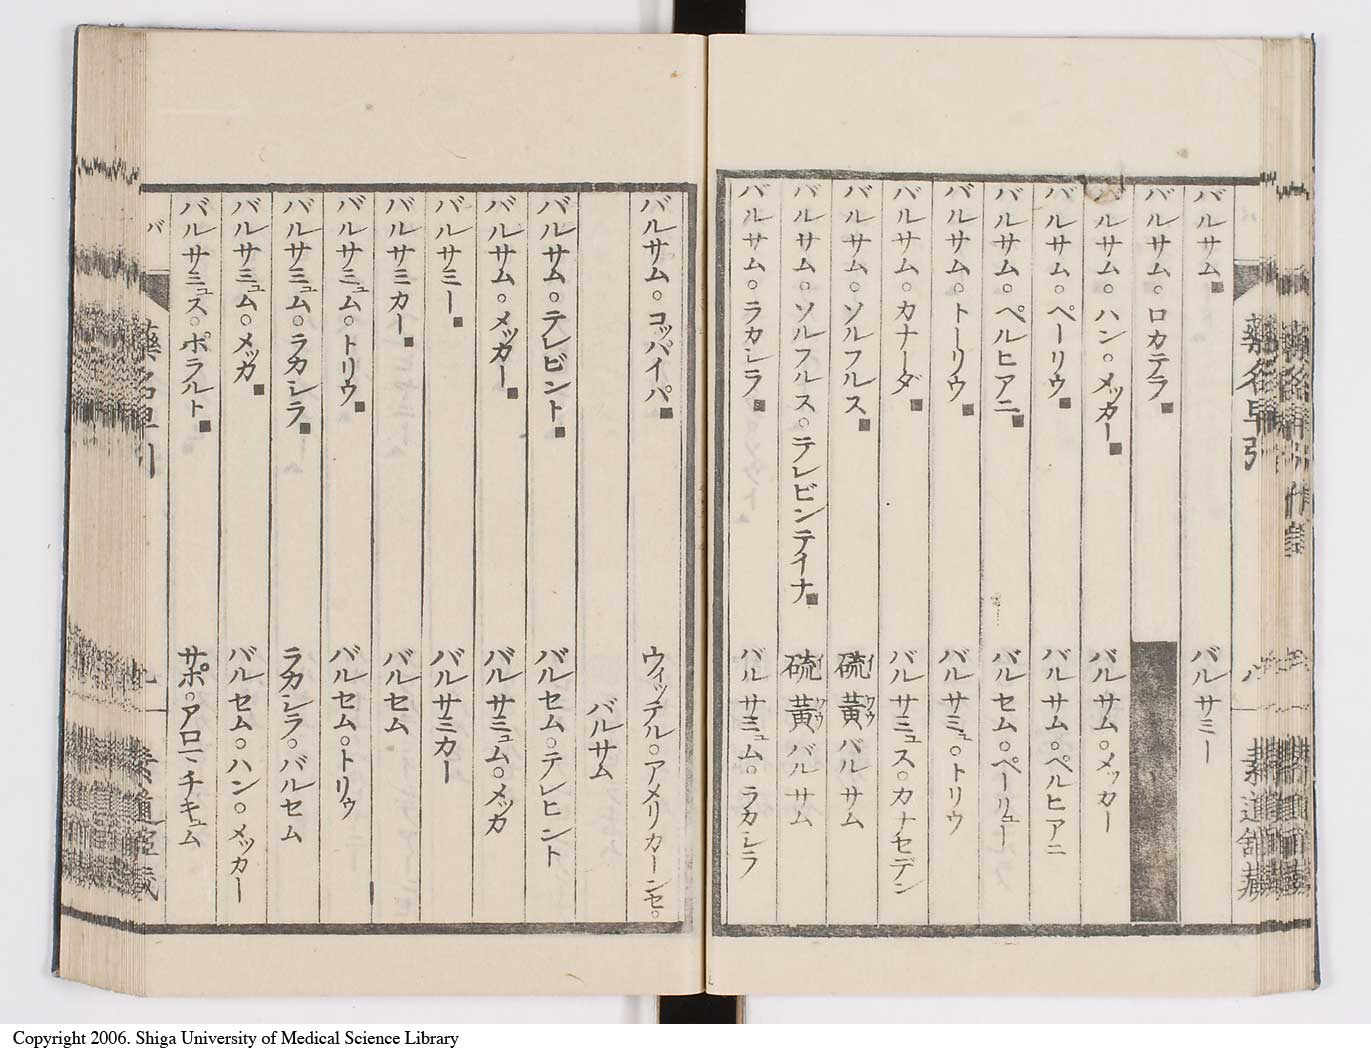 バルサム■ バルサミー
バルサム○ロカテラ■
バルサム○ハン○メッカー■ バルサム○メッカー
バルサム○ペーリウ■ バルサム○ペルヒアニ
バルサム○ペルヒアニ■ バルセム○ペーリュー
バルサム○トーリウ■ バルサミュ○トリウ
バルサム○カナーダ■ バルサミュス○カナセデン
バルサム○ソルフルス■ 硫黄バルサム
バルサム○ソルフルス○テレビンテイナ■ 硫黄バルサム
バルサム○ラカシラ■ バルサミュム○ラカシラ
バルサム○コッパイパ■ ウィッテル○アメリカーンセ○
バルサム
バルサム○テレビント■ バルセム○テレヒント
バルサム○メッカー■ バルサミュム○メッカ
バルサミー■ バルサミカー
バルサミカー■ バルセム
バルサミュム○トリウ■ バルセム○トリゥ
バルサミュム○ラカシラ■ ラカシラ○バルセム
バルサミュム○メッカ■ バルセム○ハン○メッカー
バルサミュス○ポラルト■ サポ○アロー、チキュム
バ
薬名早引
Copyright 2006. Shiga University of Medical Science Library